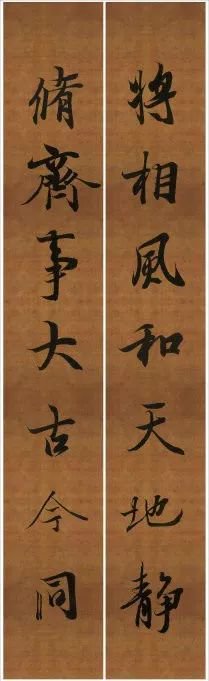 将相風和天地靜
脩齋事大古今同